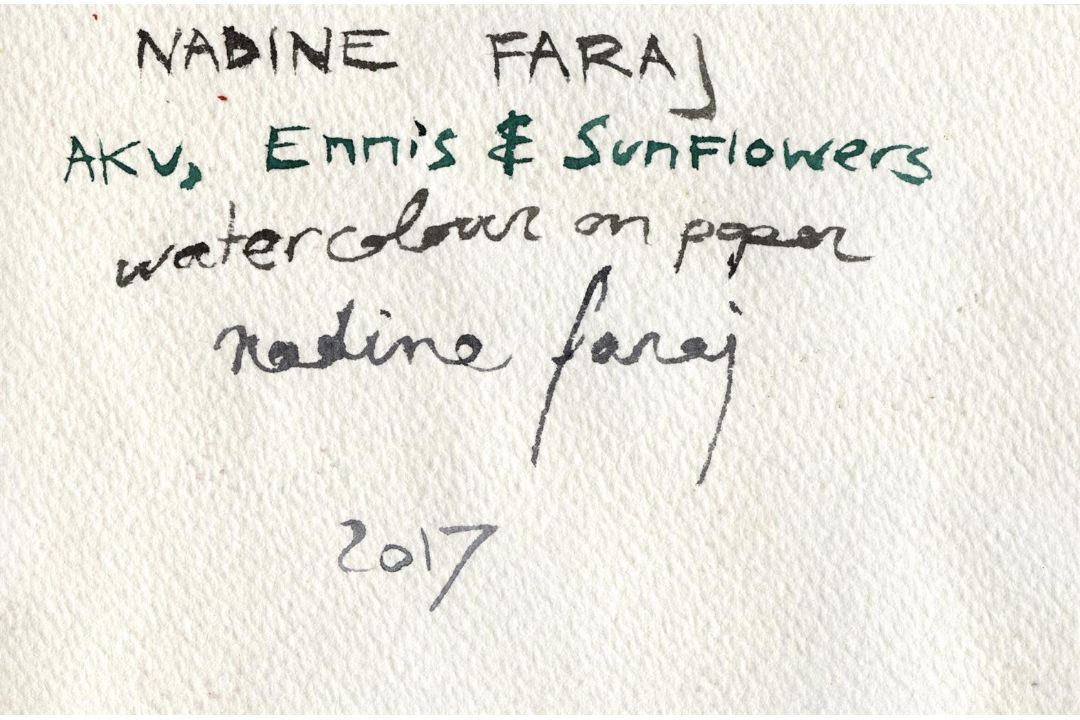 NADINE FARAJ
AKU, Ennis & SunFlowers
watercolour on paper
nadine faraj
2017